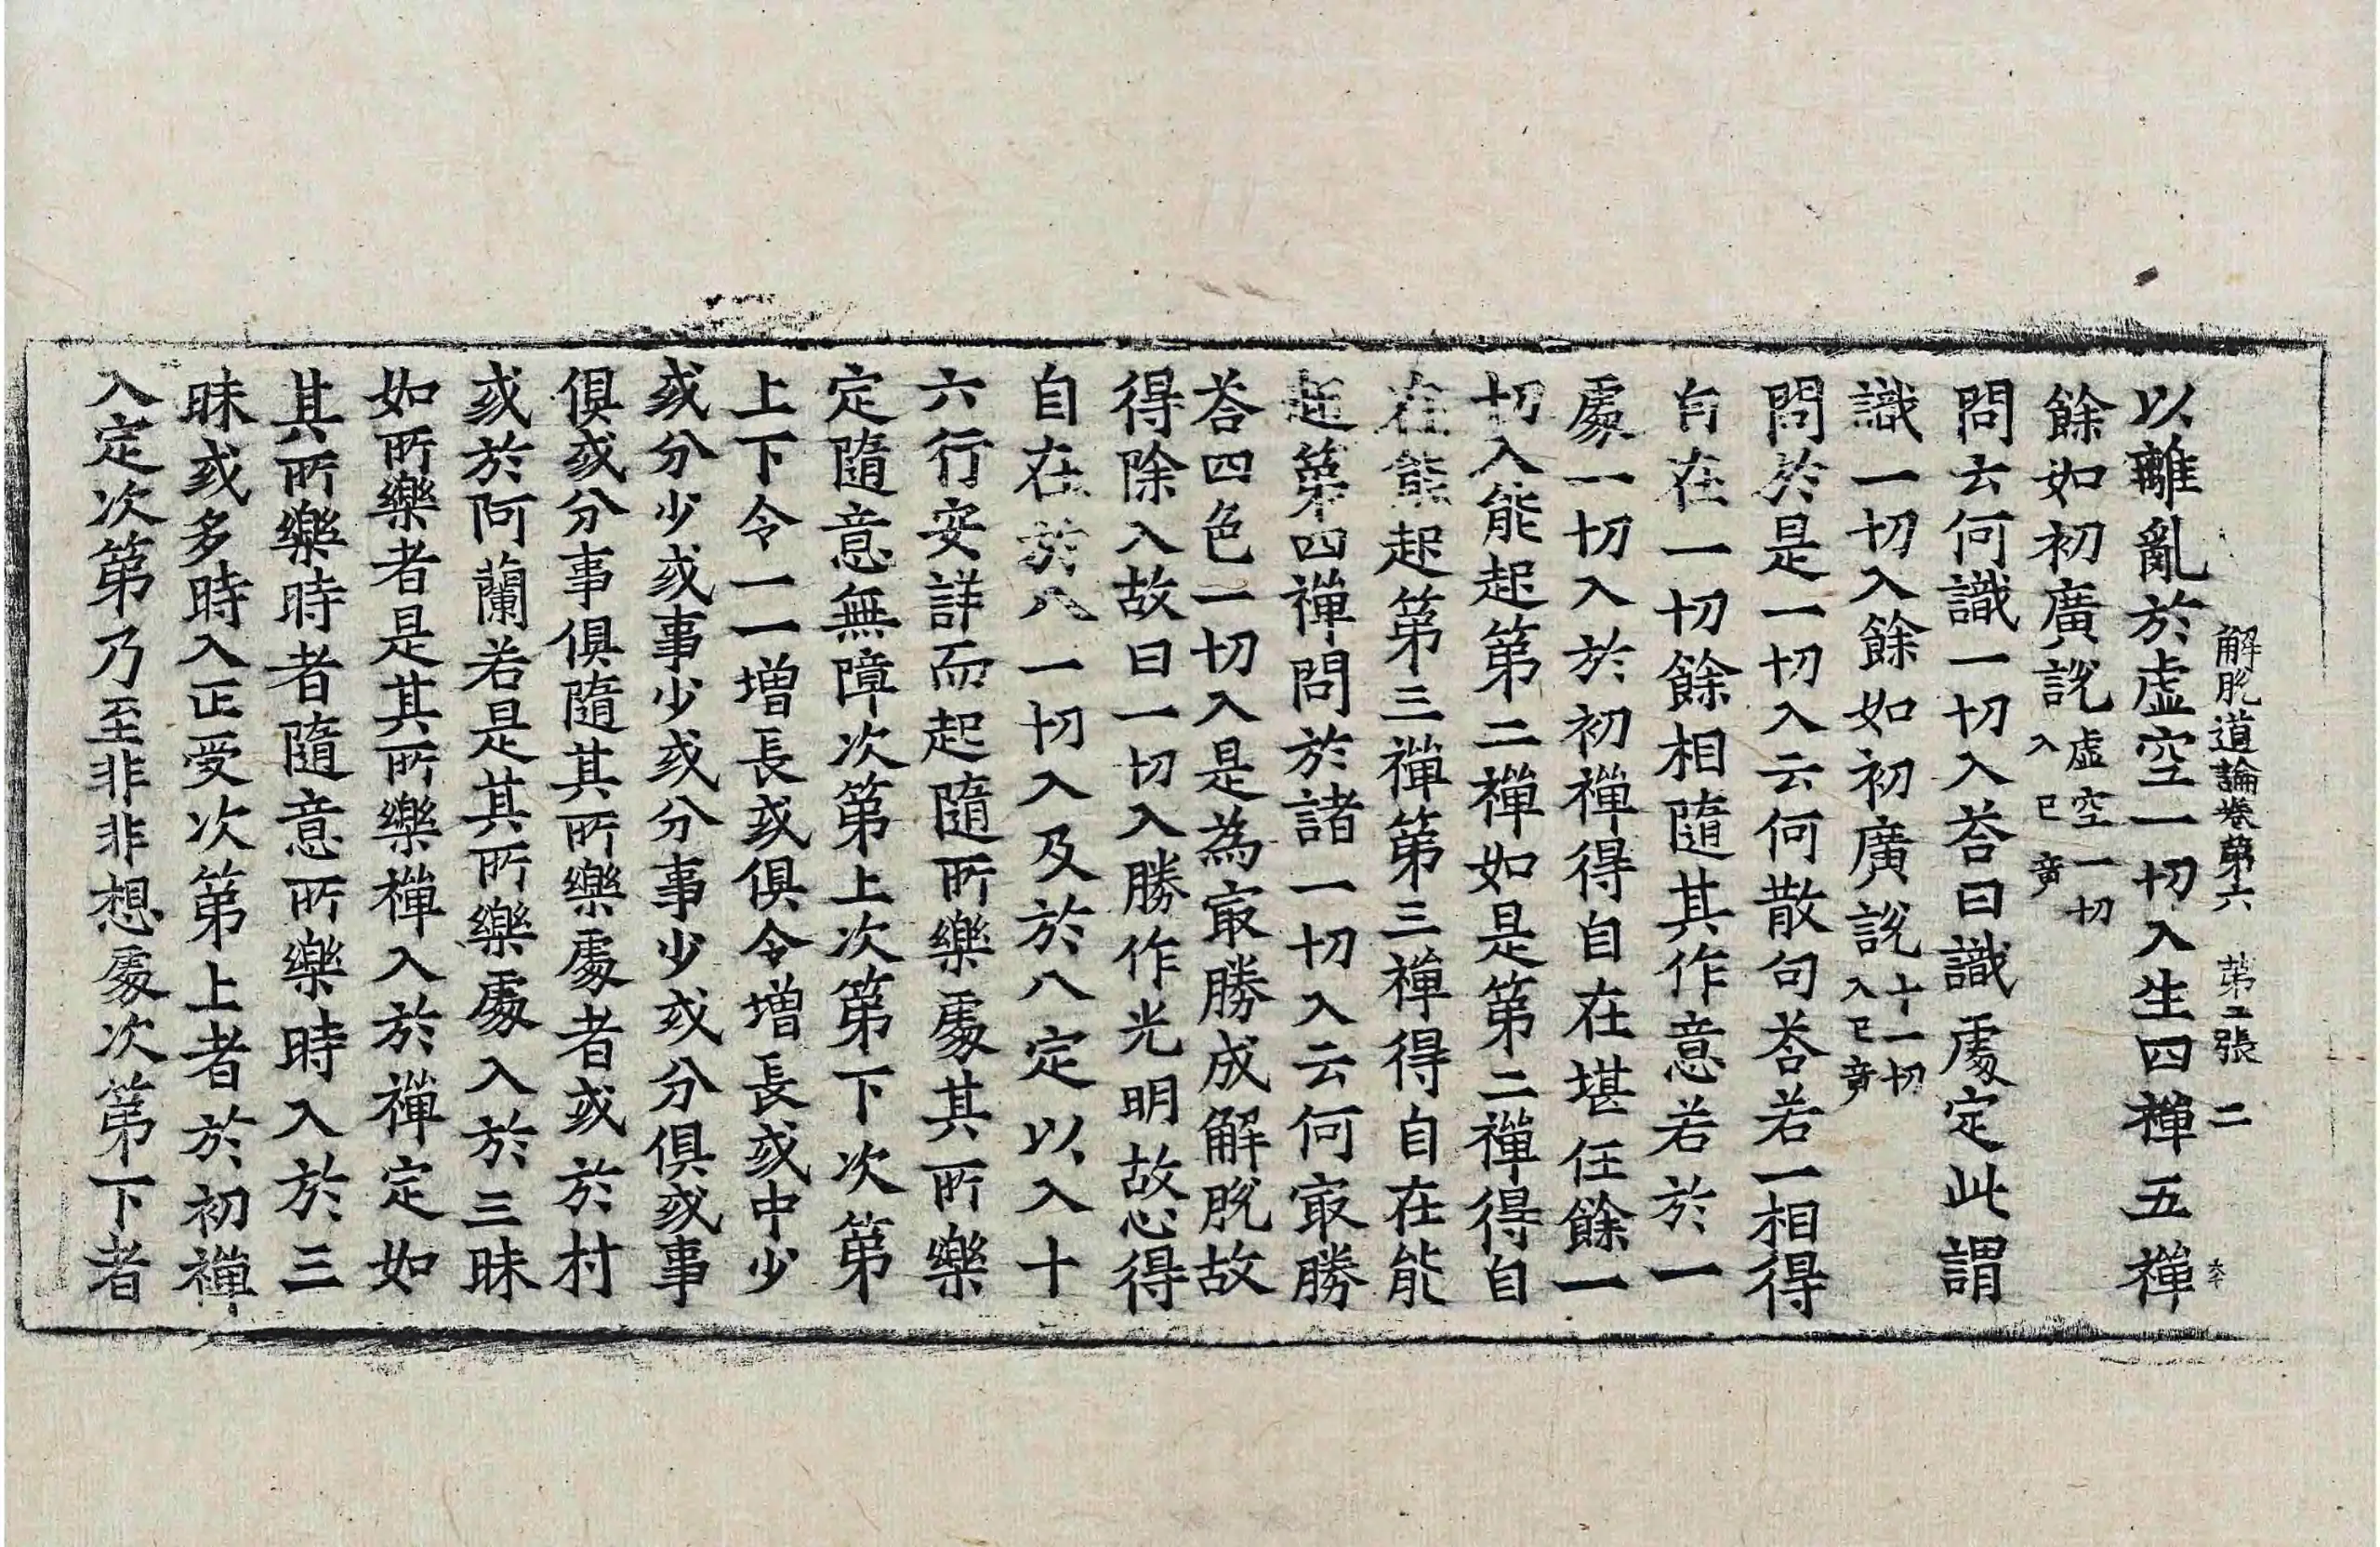 解脫道論卷第六　第二張　二
以離亂於虛空一切入生四禪五禪
餘如初廣說虛空一切入已竟
問云何識一切入荅曰識處定此謂
識一切入餘如初廣說十一切入已竟
問於是一切入云何散句荅若一相得
自在一切餘相隨其作意若於一
處一切入於初禪得自在堪任餘一
切入能起第二禪如是第二禪得自
在能起第三禪第三禪得自在能
起第四禪問於諸一切入云何㝡勝
荅四色一切入是為㝡勝成解脫故
得除入故曰一切入勝作光明故心得
自在於八一切入及於八定以入十
六行安詳而起隨所樂處其所樂
定隨意無障次第上次第下次第
上下令一一增長或俱令增長或中少
或分少或事少或分事少或分俱或事
俱或分事俱隨其所樂處者或於村
或於阿蘭若是其所樂處入於三昧
如所樂者是其所樂禪入於禪定如
其所樂時者隨意所樂時入於三
昧或多時入正受次第上者於初禪
入定次第乃至非非想處次第下者